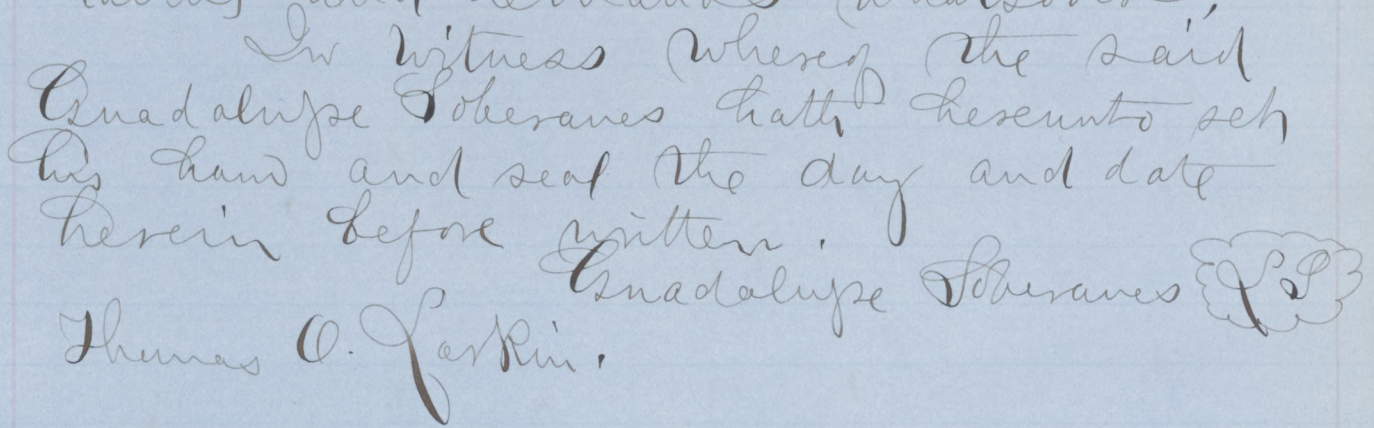 and demands whatsoever,
In witness whereof the said
Guadalupe Soberanes hath hereunto set
his hand and seal the day and date
herein before written.
Guadalupe Soberanes LS
Thomas O. Larkin.